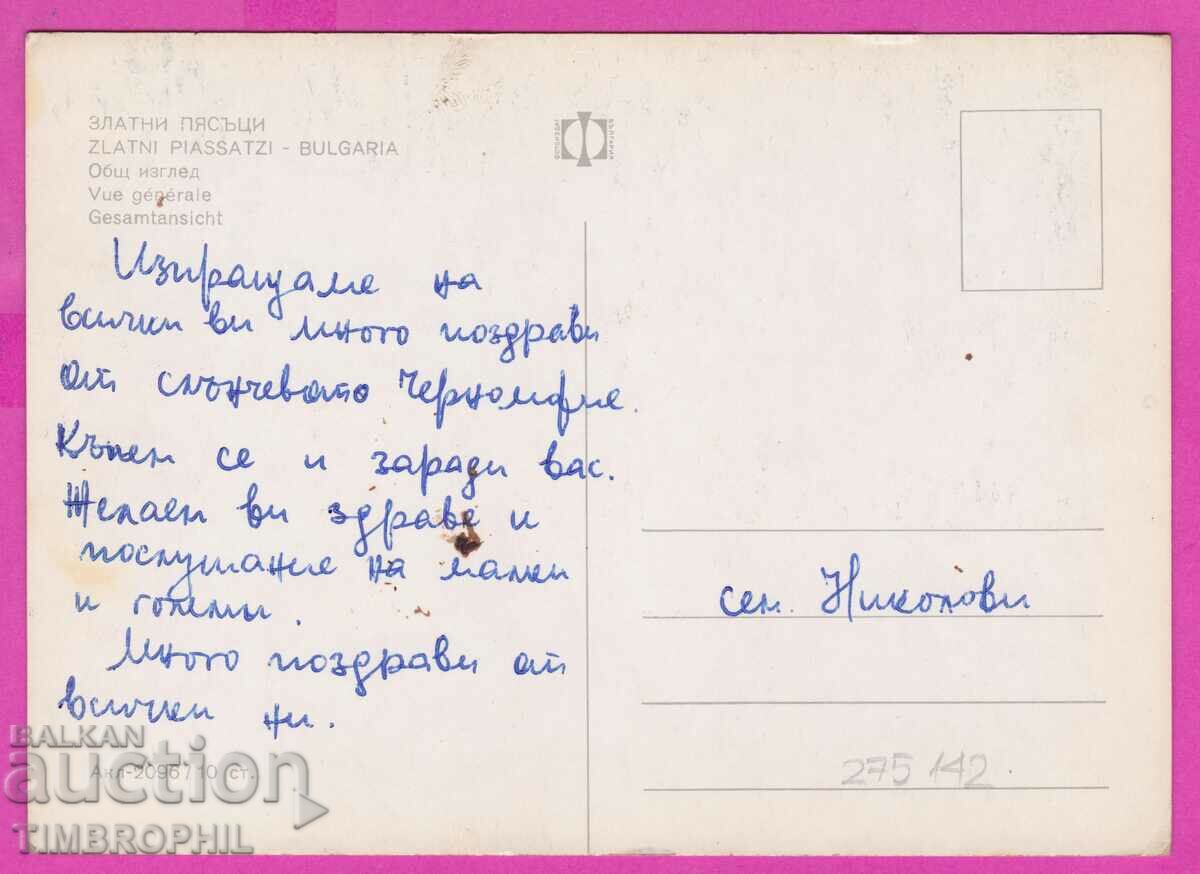 ЗЛАТНИ ПЯСЪЦИ
ZLATNI PIASSATZI - BULGARIA
Общ изглед
Vue générale
Gesamtansicht
Изпращаме на
всички ви много поздрави
от слънчевото Черноморие.
Къпем се и заради вас.
Желаем ви здраве и
послушание на малки
и големи.
Много поздрави от
всички ни.
Акл-2096/10 ст.
БЪЛГАРИЯ
сем. Николови
275142
BALKAN
auction
TIMBROPHIL